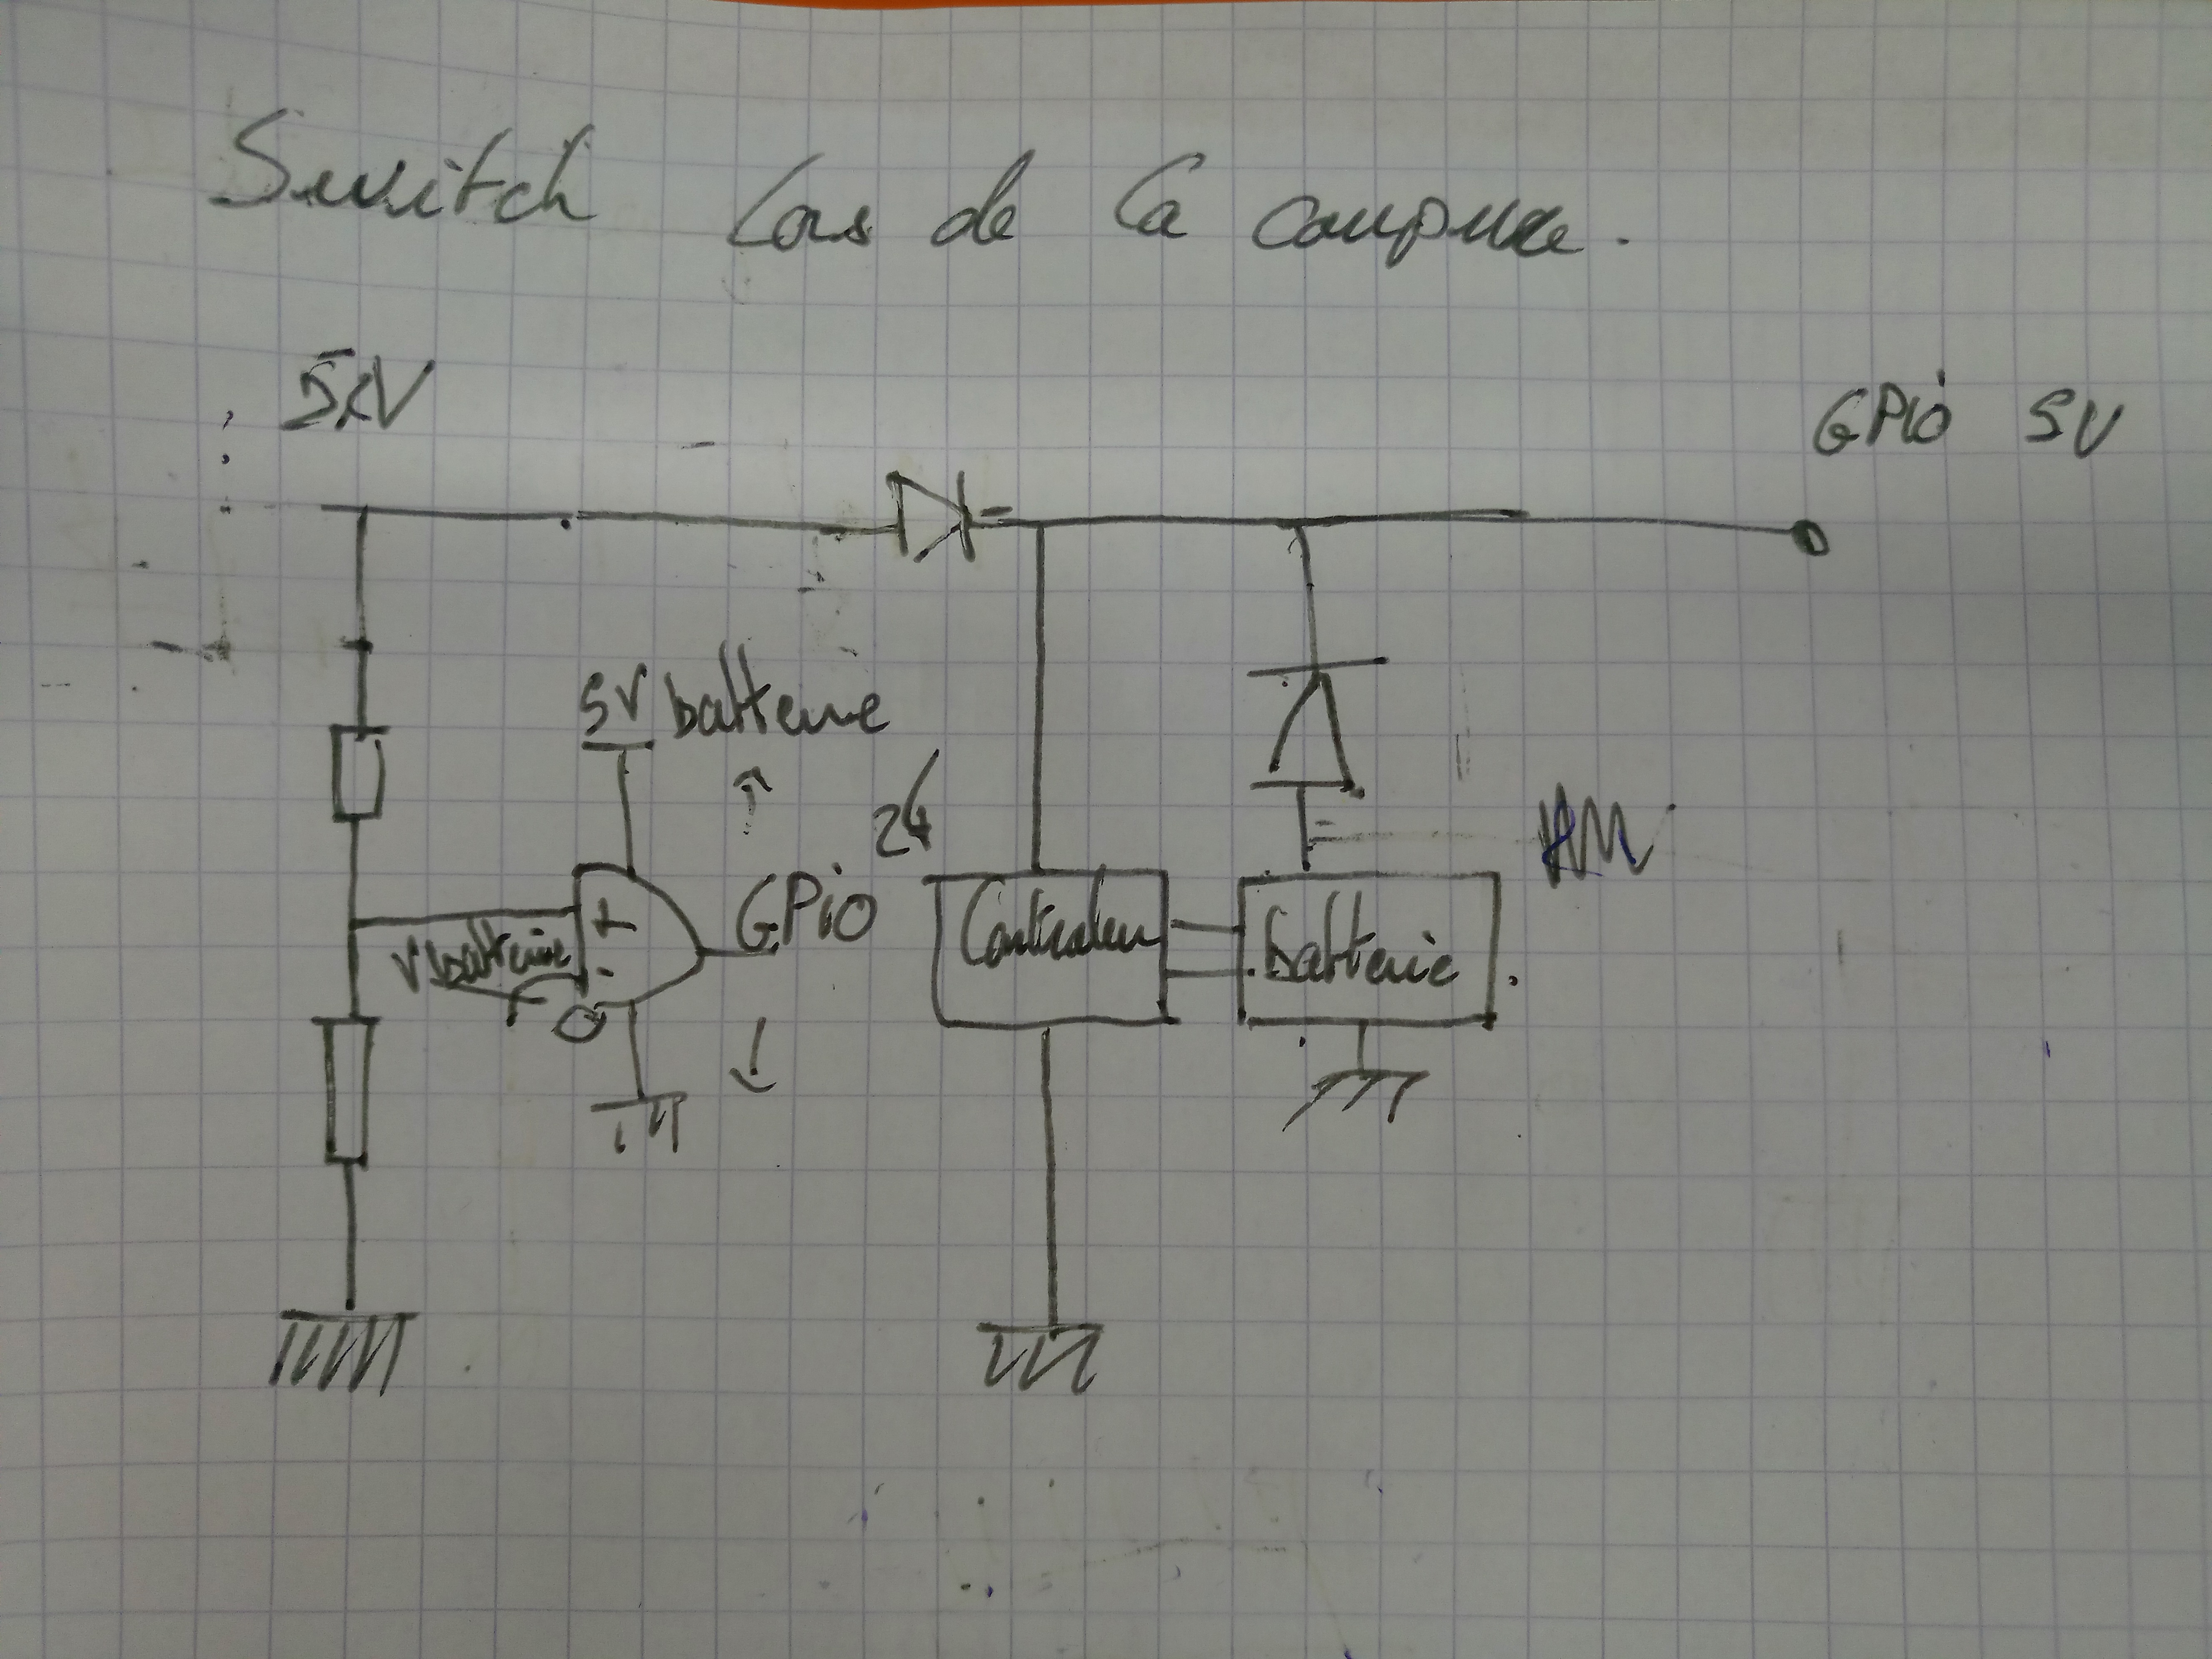 Switch lors de la coupure.
5V
GPiO 5V
5V batterie
24
GPiO
+
V batterie
-
Controleur
batterie